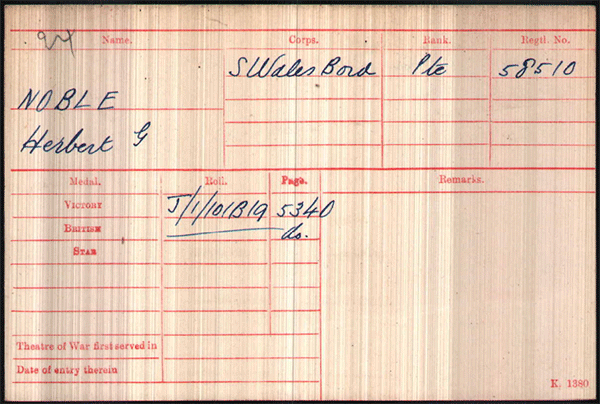 Name. Corps. Rank. Regtl. No.
S Wales Bord Pte 58510
NOBLE
Herbert G
Medal. Roll. Page. Remarks.
VICTORY J/1/101B19 5340
BRITISH do.
STAR
Theatre of War first served in
Date of entry therein
K. 1380